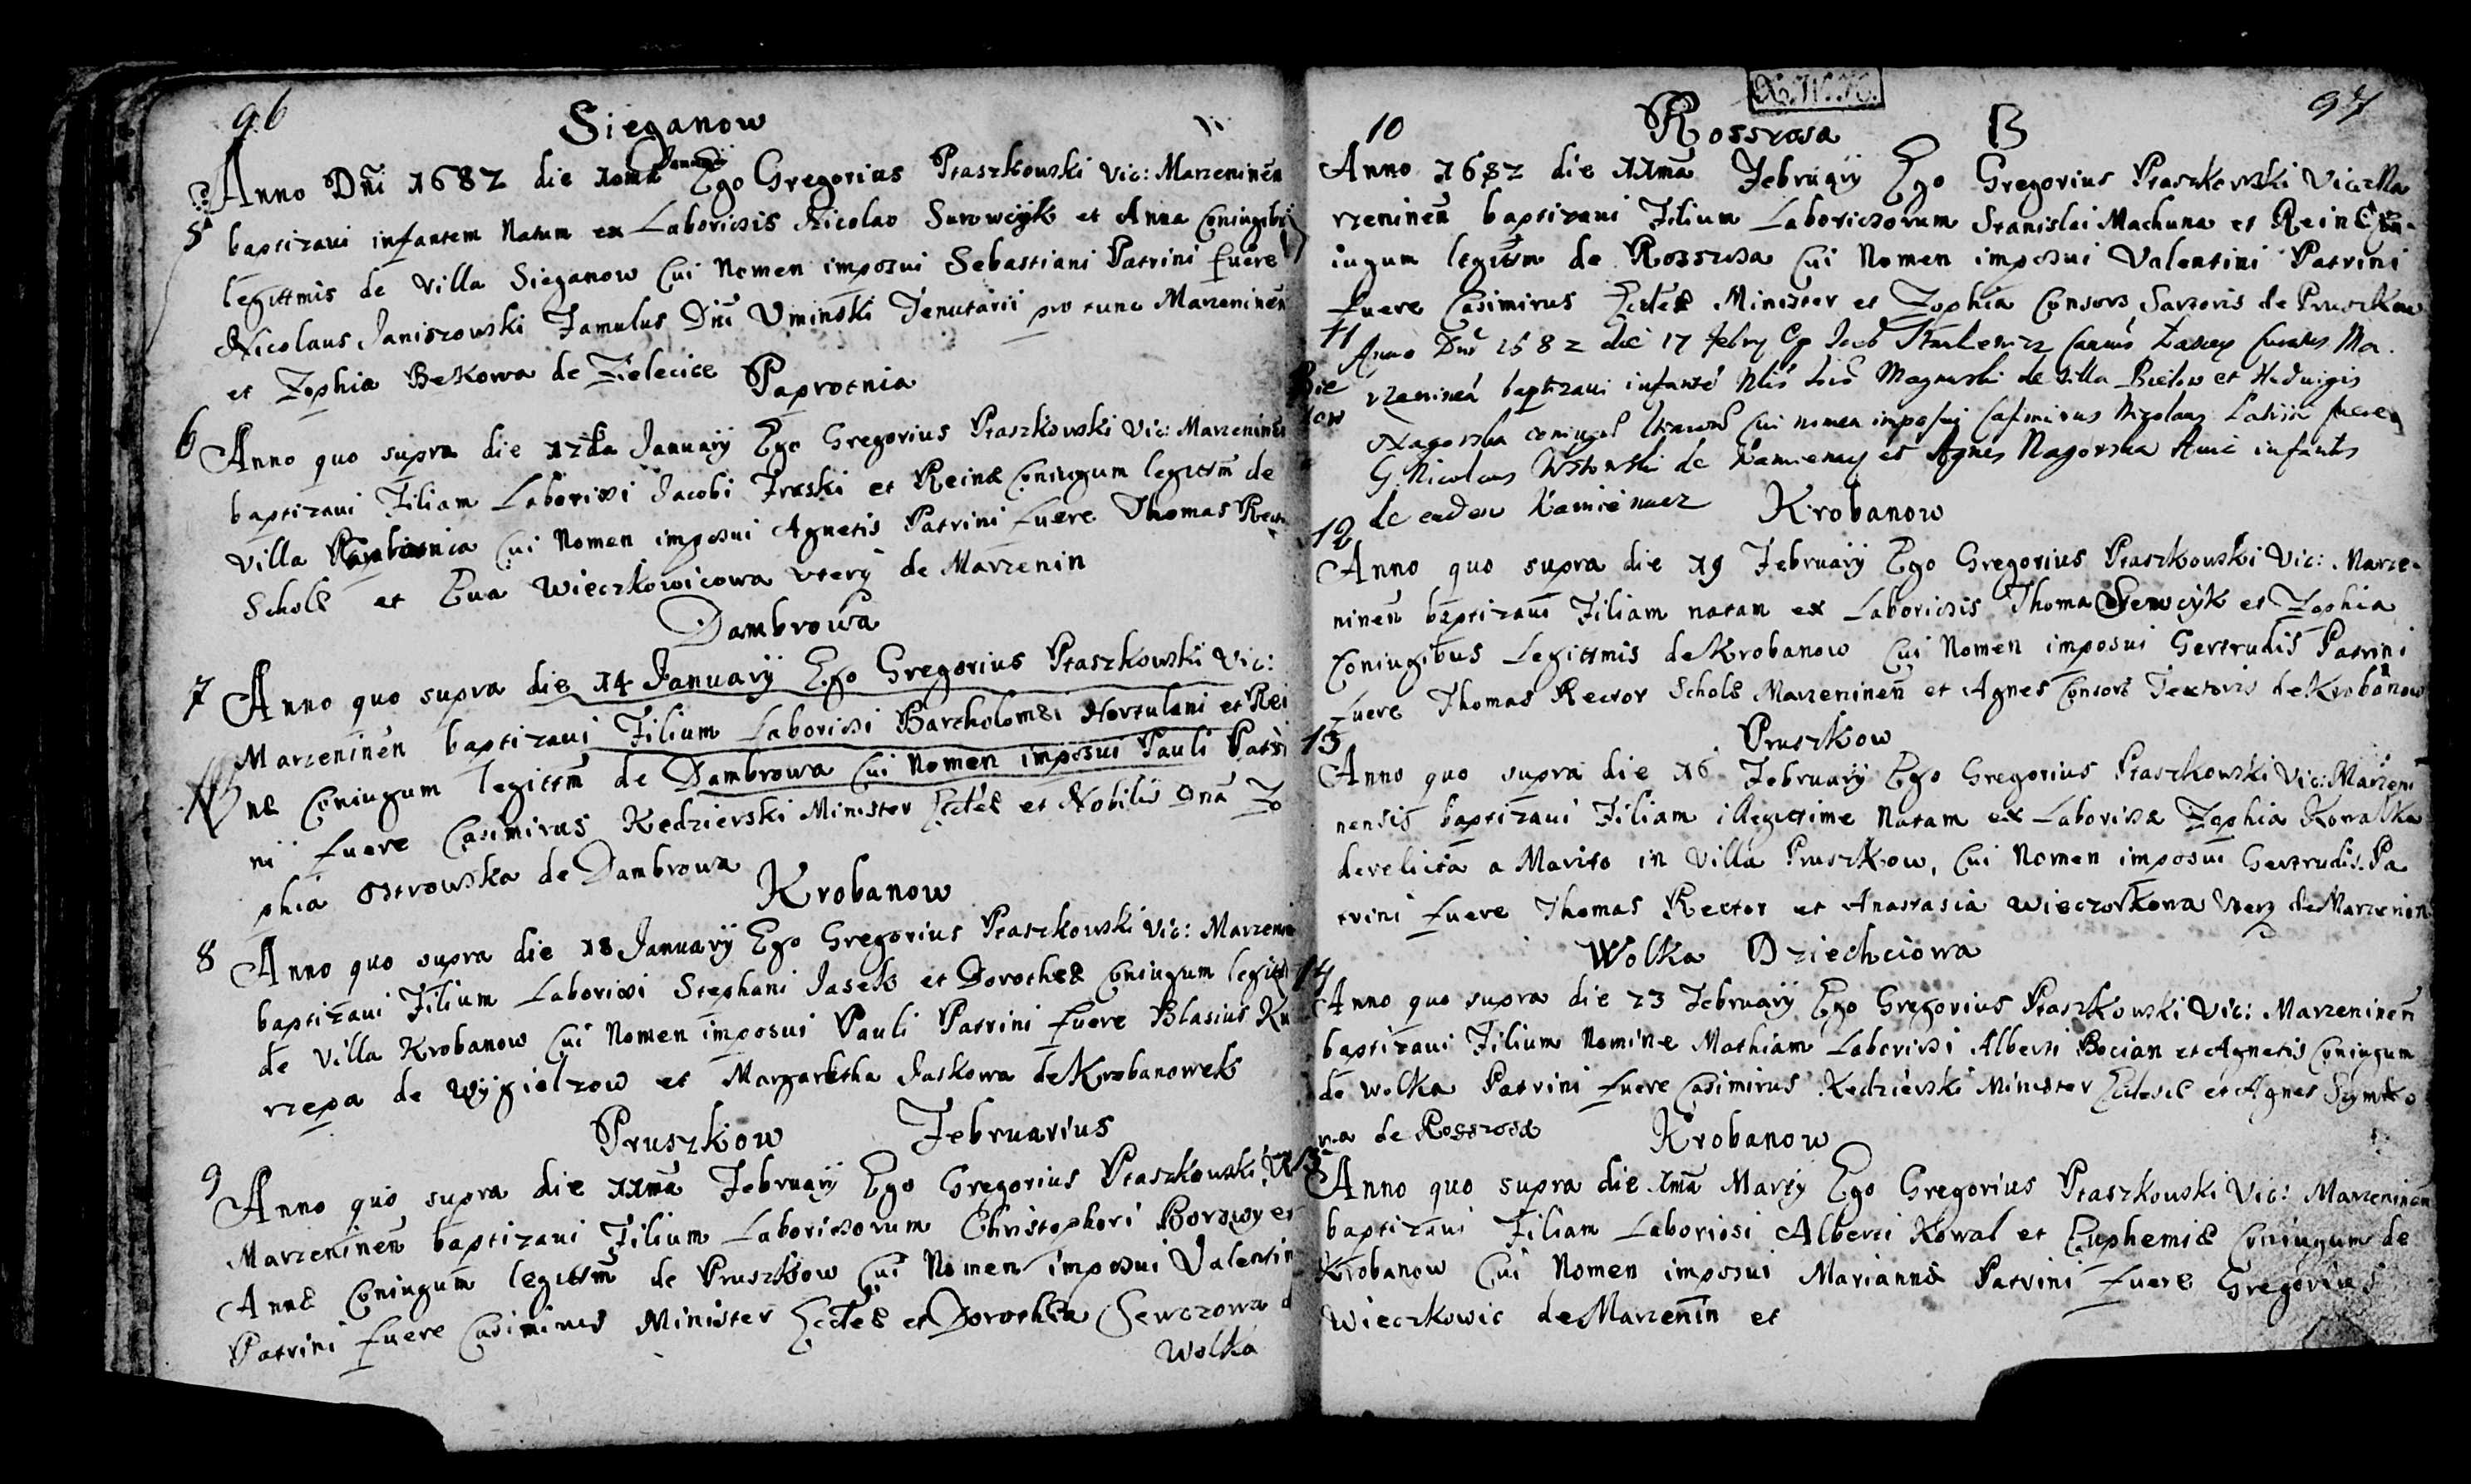 96
Sieganow
Anno Dnĩ 1682 die 10ma January Ego Gregorius Ptaszkowski Vic: Marzeninēn
5 baptizaui infantem Natum ex Laboriosis Nicolao Surowcÿk et Anna Coniugibus
legittmis de Villa Sieganow Cui Nomen imposui Sebastiani Patrini fuere
Nicolaus Janiszowski Famulus Dnĩ Uminski Tenutarii pro tunc Marzeninēn
et Zophia Bekowa de Zielecice
Paprotnia
6 Anno quo supra die 12da Januarÿ Ego Gregorius Ptaszkowski Vic: Marzeninēn
baptizaui Filiam Laboriosi Jacobi Fraski et Reinæ Coniugum legittm̃ de
Villa Cui Nomen imposui Agnetis Patrini fuere Thomas Rector
Scholæ et Eua Wieczkowicowa Vterq de Marzenin
Dambrowa
7 Anno quo supra die 14 Januarÿ Ego Gregorius Ptaszkowski Vic:
Marzeninēn baptizaui Filium Laboriosi Bartholomæi Hortulani et Rei
næ Coniugum legittm̃ de Dambrowa Cui Nomen imposui Pauli Patri
ni fuere Casimirus Kedzierski Minister Ecclæ et Nobilis Dnã Zo
phia Ostrowska de Dambrowa
Krobanow
8 Anno quo supra die 18 Januarÿ Ego Gregorius Ptaszkowski Vic: Marzenin
baptizaui Filium Laboriosi Stephani Jasek et Dorotheæ Coniugum legittm̃
de Villa Krobanow Cui Nomen imposui Pauli Patrini fuere Blasius Ku
rzepa de Wÿgielzow et Margaretha Jaskowa de Krobanowek
Pruszkow Februarius
9 Anno quo supra die 11ma Februarÿ Ego Gregorius Ptaszkowski
Marzeninēn baptizaui Filium Laboriosorum Christophori Borowy et
Annæ Coniugum legittm̃ de Pruszkow Cui Nomen imposui Valentin
Patrini fuere Casimirus Minister Ecclæ et Dorothea Sewczowa d
Wolka
97
10 Rossosa B
Anno 1682 die 11ma Februarÿ Ego Gregorius Ptaszkowski Vic: Ma
rzeninēn baptizaui Filium Laboriosorum Stanislai Machuna et Rein Con
iugum legittm de Rossosa Cui Nomen imposui Valentini Patrini
fuere Casimirus Ecclæ Minister et Zophia Consors Sartoris de Pruszkow
11 Anno Dnĩ 1682 die 17 Febry Curatus Ma
rzeninēn baptizaui de Villa Bielow et Heduigis
Nagorska cui nomen imposui Casimirus Nicolaus Patrini fuere
G Nicolaus de Kamieniecz et Agnes Nagorska infantis
de eadem Kamieniecz
Krobanow
12
Anno quo supra die 19 Februarÿ Ego Gregorius Ptaszkowski Vic: Marze-
ninēn baptizaui Filiam natam ex Laboriosis Thoma Sewcÿk et Zophia
Coniugibus Legittmis de Krobanow Cui Nomen imposui Gertrudis Patrini
fuere Thomas Rector Scholæ Marzeninēn et Agnes Consors Textoris de Krobanow
13 Pruszkow
Anno quo supra die 16 Februarÿ Ego Gregorius Ptaszkowski Vic: Marzeni
nensis baptizaui Filiam illegittime Natam ex Laboriosa Zophia Kowalka
derelicta a Marito in Villa Pruszkow, Cui Nomen imposui Gertrudis. Pa
trini fuere Thomas Rector et Anastasia Wieczorkowa Vterq de Marzenin
Wolka Dziechciowa
14
Anno quo supra die 23 Februarÿ Ego Gregorius Ptaszkowski Vic: Marzeninēn
baptizaui Filium Nomine Mathiam Laboriosi Alberti Bocian et Agnetis Coniugum
de Wolka Patrini fuere Casimirus Kedzierski Minister Eclesiæ et Agnes Symko
na de Rossosa
Krobanow
15
Anno quo supra die 1ma Martÿ Ego Gregorius Ptaszkowski Vic: Marzeninēn
baptizaui Filiam Laboriosi Alberti Kowal et Euphemiæ Coniugum de
Krobanow Cui Nomen imposui Mariannæ Patrini fuere Gregorius
Wieczkowic de Marzenin et